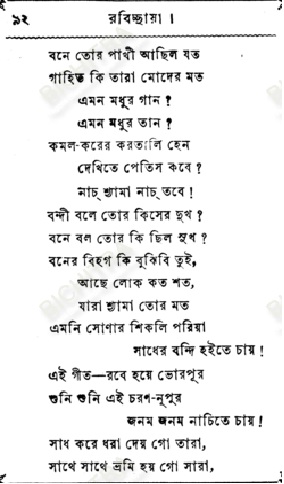 ৯২
রবিচ্ছায়া ।
বনে তোর পাখী আছিল যত
গাহিত কি তারা মোদের মত
এমন মধুর গান ?
এমন মধুর তান ?
কমল-করের করতালি হেন
দেখিতে পেতিস কবে ?
নাচ্ শ্যামা নাচ্ তবে !
বন্দী বলে তোর কিসের দুখ ?
বনে বল তোর কি ছিল সুখ ?
বনের বিহগ কি বুঝিবি তুই,
আছে লোক কত শত,
যারা শ্যামা তোর মত
এমনি সোণার শিকলি পরিয়া
সাধের বন্দি হইতে চায় !
এই গীত—রবে হয়ে ভোরপূর
শুনি শুনি এই চরণ-নূপুর
জনম জনম নাচিতে চায় !
সাধ করে ধরা দেয় গো তারা,
সাথে সাথে ভ্রমি হয় গো সারা,